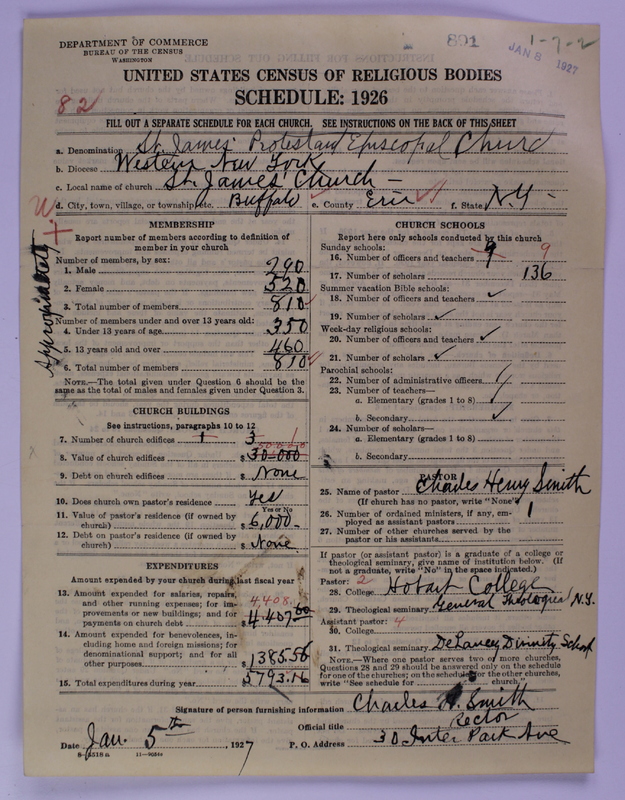 DEPARTMENT OF COMMERCE
BUREAU OF THE CENSUS
WASHINGTON
801
JAN 8 1927
1-7-2
UNITED STATES CENSUS OF RELIGIOUS BODIES
SCHEDULE: 1926
82
FILL OUT A SEPARATE SCHEDULE FOR EACH CHURCH. SEE INSTRUCTIONS ON THE BACK OF THIS SHEET
a. Denomination St. James' Protestant Episcopal Church
b. Diocese Western New York
c. Local name of church St. James' Church -
d. City, town, village, or township etc. Buffalo e. County Erie f. State N.Y -
Approximately
MEMBERSHIP
Report number of members according to definition of member in your church
Number of members, by sex:
1. Male 290
2. Female 520
3. Total number of members 810
Number of members under and over 13 years old:
4. Under 13 years of age 350
5. 13 years old and over 460
6. Total number of members 810
NOTE.—The total given under Question 6 should be the
same as the total of males and females given under Question 3.
CHURCH BUILDINGS
See instructions, paragraphs 10 to 12
7. Number of church edifices 1 3 1
8. Value of church edifices $ 30-000
9. Debt on church edifices $ None
10. Does church own pastor's residence Yes
Yes or No
11. Value of pastor's residence (if owned by
church) $ 6,000-
12. Debt on pastor's residence (if owned by
church) $ None
EXPENDITURES
Amount expended by your church during last fiscal year
13. Amount expended for salaries, repairs,
and other running expenses; for im-
provements or new buildings; and for
payments on church debt $ 4,408. 4,407.60
14. Amount expended for benevolences, in-
cluding home and foreign missions; for
denominational support; and for all
other purposes $ 1385.56
15. Total expenditures during year 5793.16
CHURCH SCHOOLS
Report here only schools conducted by this church
Sunday schools:
16. Number of officers and teachers 9 9
17. Number of scholars 136
Summer vacation Bible schools:
18. Number of officers and teachers
19. Number of scholars
Week-day religious schools:
20. Number of officers and teachers
21. Number of scholars
Parochial schools:
22. Number of administrative officers
23. Number of teachers—
a. Elementary (grades 1 to 8)
b. Secondary
24. Number of scholars—
a. Elementary (grades 1 to 8)
b. Secondary
PASTOR
25. Name of pastor Charles Henry Smith
(If church has no pastor, write "None")
26. Number of ordained ministers, if any, em-
ployed as assistant pastors 1
27. Number of other churches served by the
pastor or his assistants
If pastor (or assistant pastor) is a graduate of a college or
theological seminary, give name of institution below. (If
not a graduate, write "No" in the space indicated.)
Pastor: 2
28. College Hobart College
29. Theological seminary General Theological N.Y.
Assistant pastor: 4
30. College
31. Theological seminary DeLancey Divinity School
NOTE.—Where one pastor serves two or more churches,
Questions 28 and 29 should be answered only on the schedule
for one of the churches; on the schedule for the other churches,
write "See schedule for church"
Signature of person furnishing information Charles H. Smith
Official title Rector
Date Jan. 5th, 1927 P. O. Address 30 Inter Park Ave